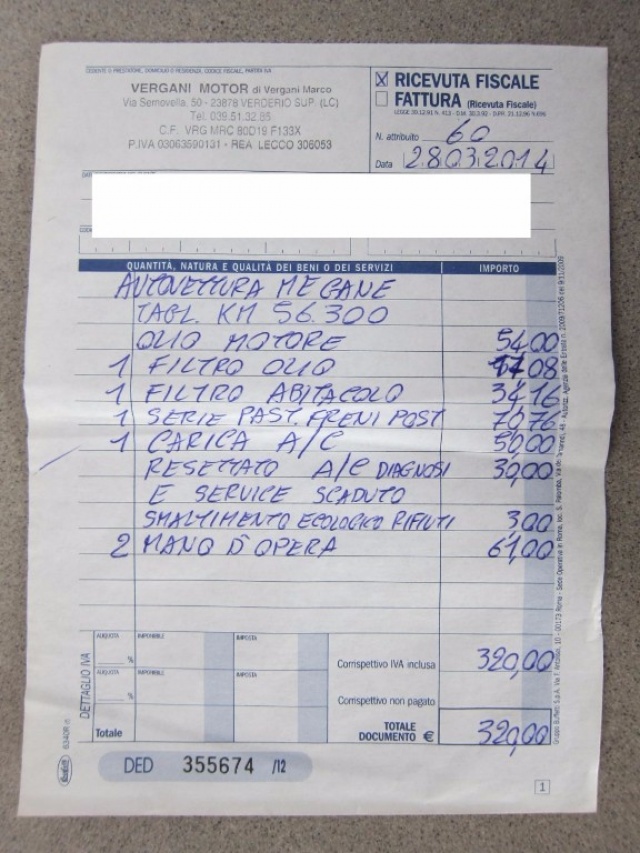 CEDENTE O PRESTATORE, DOMICILIO O RESIDENZA, CODICE FISCALE, PARTITA IVA
VERGANI MOTOR di Vergani Marco
Via Semovella, 50 - 23878 VERDERIO SUP. (LC)
Tel. 039.51.32.85
C.F. VRG MRC 80D19 F133X
P.IVA 03063590131 - REA LECCO 306053
X RICEVUTA FISCALE
FATTURA (Ricevuta Fiscale)
N. attribuito 60
Data 28032014
QUANTITÀ, NATURA E QUALITÀ DEI BENI O DEI SERVIZI IMPORTO
AUTOVETTURA MEGANE
TAGL. KM 56.300
OLIO MOTORE 54,00
1 FILTRO OLIO 17,08
1 FILTRO ABITACOLO 34,16
1 SERIE PAST. FRENI POST 70,76
1 CARICA A/C 50,00
RESETTATO A/C DIAGNOSI 30,00
E SERVICE SCADUTO
SMALTIMENTO ECOLOGICO RIFIUTI 3,00
2 MANO D'OPERA 61,00
DETTAGLIO IVA
ALIQUOTA IMPONIBILE IMPOSTA
%
Corrispettivo IVA inclusa 320,00
ALIQUOTA IMPONIBILE IMPOSTA
%
Corrispettivo non pagato
Totale
TOTALE DOCUMENTO € 320,00
DED 355674 /12
1